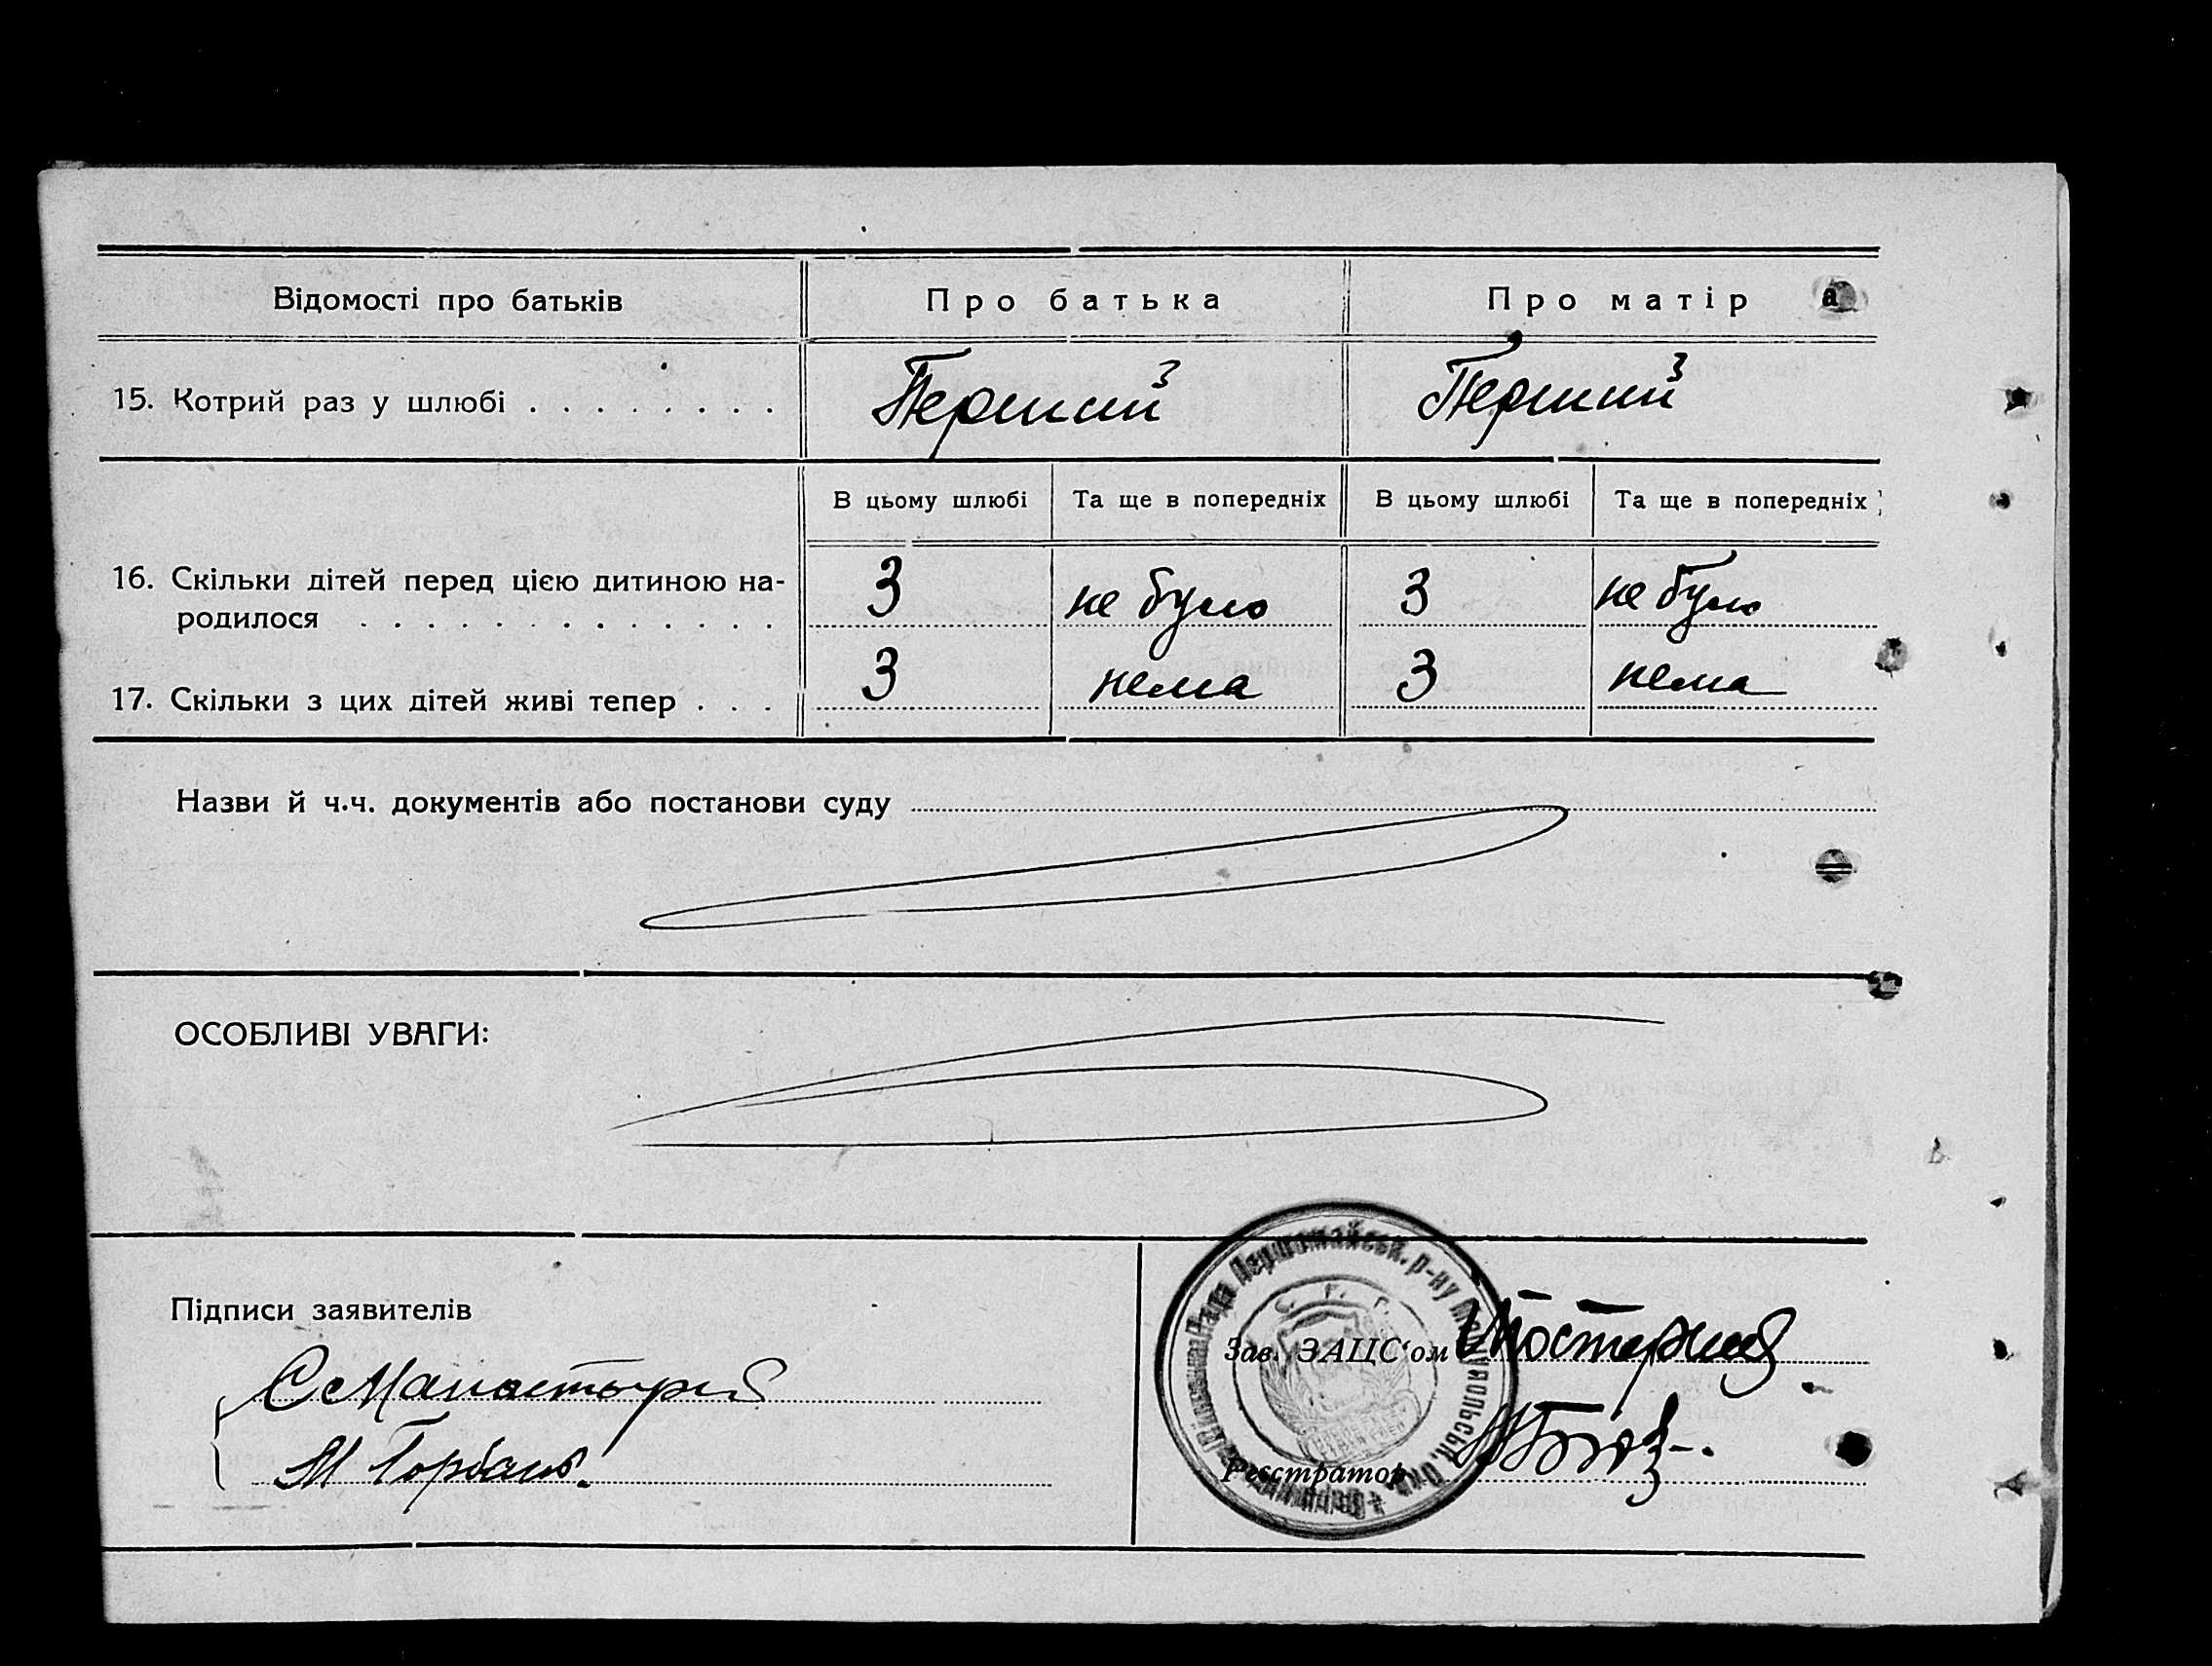 Відомості про батьків Про батька Про матір
15. Котрий раз у шлюбі . . . . . . . . Перший Перший
В цьому шлюбі Та ще в попередніх В цьому шлюбі Та ще в попередніх
16. Скільки дітей перед цією дитиною на-
родилося . . . . . . . . . . . . . 3 не було 3 не було
17. Скільки з цих дітей живі тепер . . . 3 нема 3 нема
Назви й ч.ч. документів або постанови суду
ОСОБЛИВІ УВАГИ:
Рада Першомайськ. р-ну Маріупольськ.
Підписи заявителів
Зав. ЗАЦС'ом
М Горбань.
Реєстратор